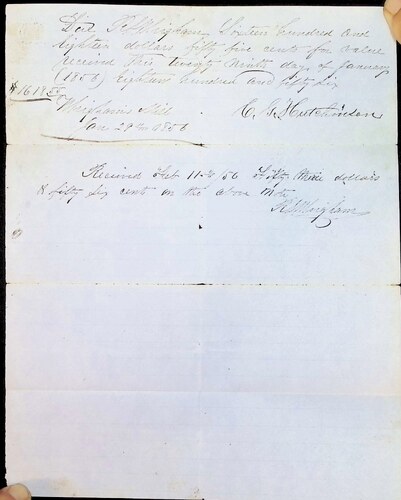 Due R H Whigham Sixteen hundred and
eighteen dollars fifty five cents for value
received this twenty Ninth day of January
(1856) Eighteen hundred and fifty six
$1618.55
C. G. Hutchinson
Whighams Mill
Jan 29th 1856
Received Feb 11th 56 Fifty three dollars
& fifty six cents on the above note
R H Whigham